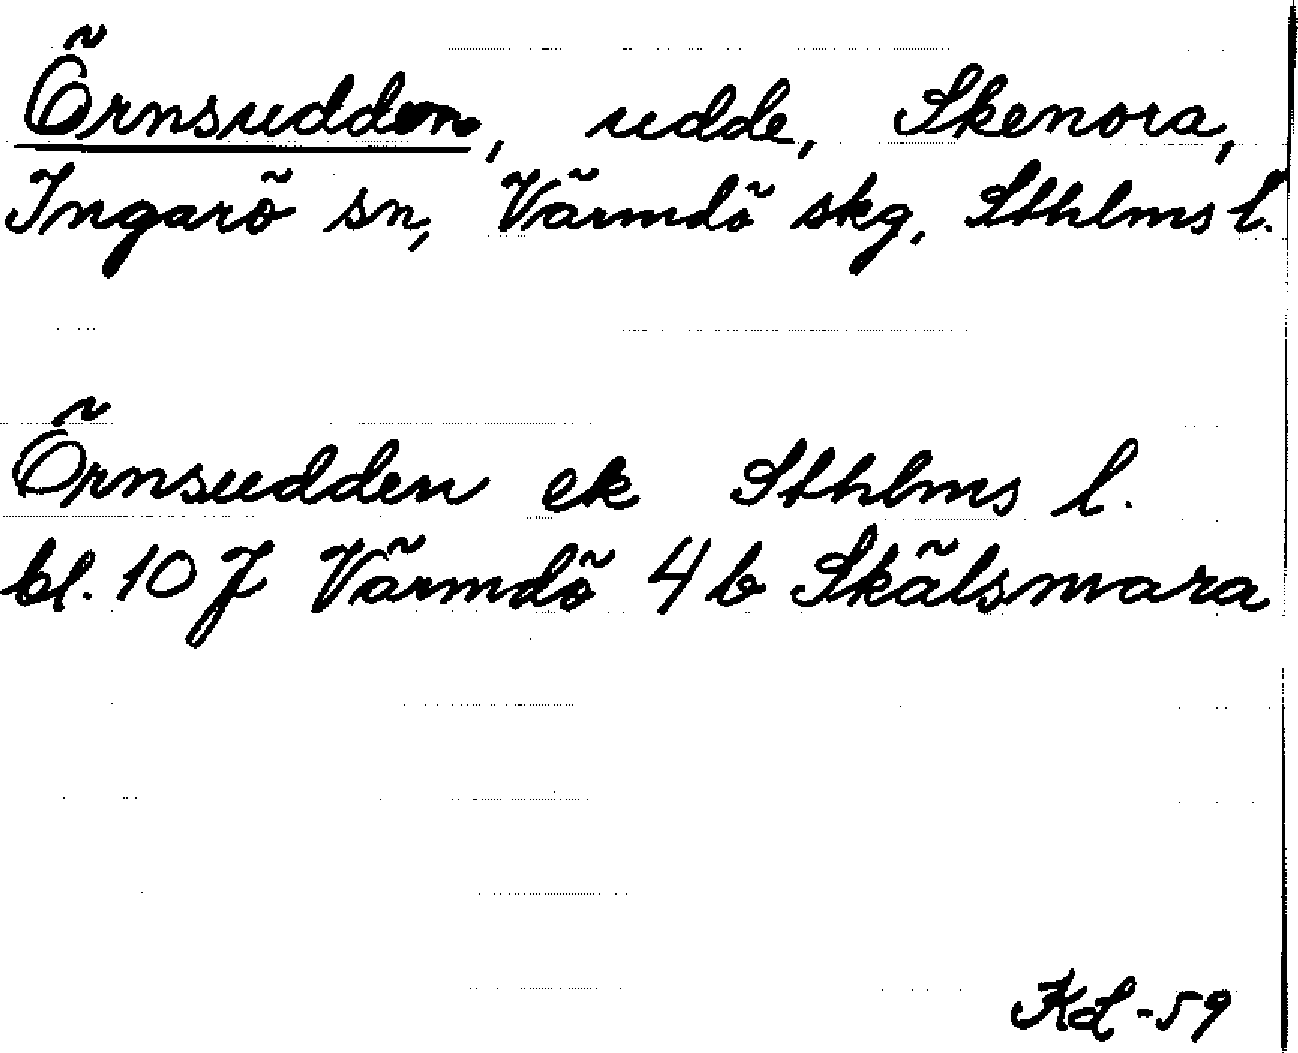 Örnsudden, udde, Skenora,
Ingarö sn, Värmdö skg, Sthlms l.
Örnsudden ek Sthlms l.
bl. 10 J Värmdö 4 b Skälsmara
KL -59